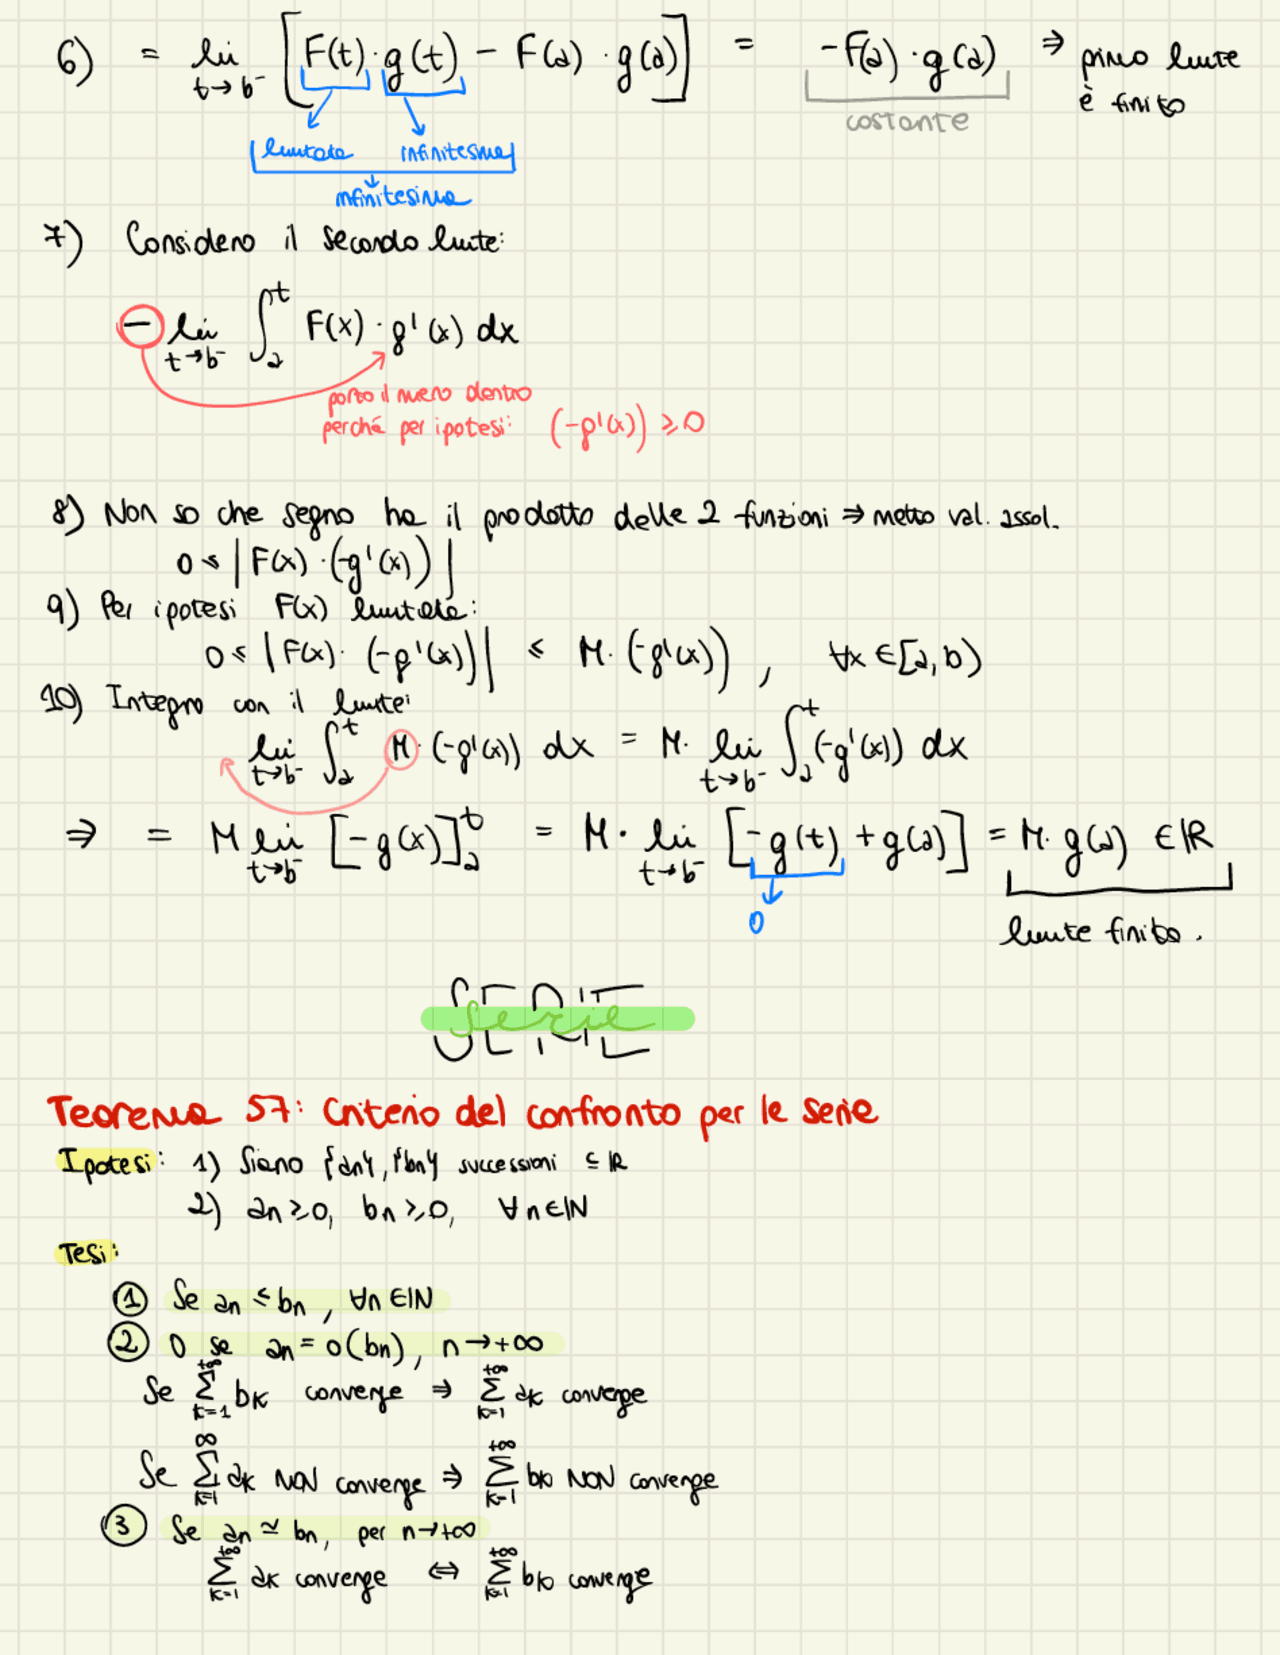 6) = lim t→b⁻ [F(t)·g(t) - F(a)·g(a)] = -F(a)·g(a) ⇒ primo limite è finito
costante
limitata infinitesima
infinitesima
7) Considero il secondo limite:
- lim t→b⁻ ∫ₐᵗ F(x)·g'(x) dx
porto il meno dentro
perché per ipotesi: (-g'(x)) ≥ 0
8) Non so che segno ha il prodotto delle 2 funzioni ⇒ metto val. assol.
0 ≤ |F(x)·(-g'(x))|
9) Per ipotesi F(x) limitata:
0 ≤ |F(x)·(-g'(x))| ≤ M·(-g'(x)), ∀x ∈ [a,b)
10) Integro con il limite:
lim t→b⁻ ∫ₐᵗ M·(-g'(x)) dx = M· lim t→b⁻ ∫ₐᵗ (-g'(x)) dx
⇒ = M lim t→b⁻ [-g(x)]ₐᵗ = M· lim t→b⁻ [-g(t) + g(a)] = M·g(a) ∈ ℝ
0
limite finito.
SERIE
Serie
Teorema 57: Criterio del confronto per le serie
Ipotesi: 1) Siano {an}, {bn} successioni ⊆ ℝ
2) an ≥ 0, bn ≥ 0, ∀n ∈ ℕ
Tesi:
① Se an ≤ bn, ∀n ∈ ℕ
② O se an = o(bn), n→+∞
Se Σ_{k=1}^{+∞} bk converge ⇒ Σ_{k=1}^{+∞} ak converge
Se Σ_{k=1}^{∞} ak NON converge ⇒ Σ_{k=1}^{+∞} bk NON converge
③ Se an ≃ bn, per n→+∞
Σ_{k=1}^{+∞} ak converge ⇔ Σ_{k=1}^{+∞} bk converge